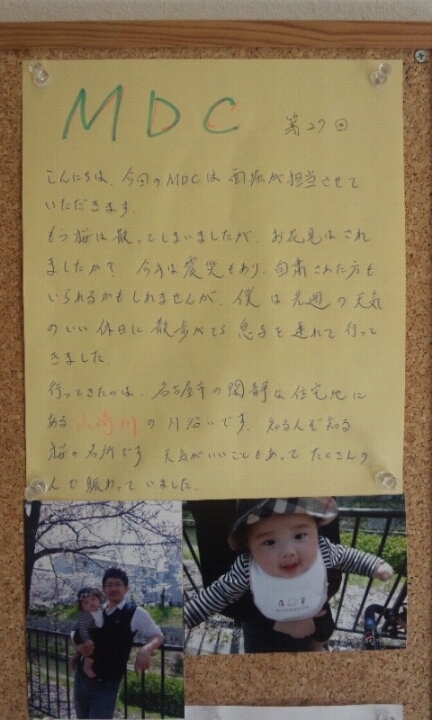 MDC 第27回
こんにちは、今回のMDCは が担当させて
いただきます
もう桜は散ってしまいましたが、お花見はされ
ましたか? 今年は震災もあり、自粛された方も
いられるかもしれませんが、僕は先週の天気
のいい休日に散歩がてら息子を連れて行って
きました。
行ってきたのは、名古屋市の閑静な住宅地に
ある山崎川の川沿いです。知る人ぞ知る
桜の名所です 天気がいいこともあってたくさんの
人で賑わっていました。